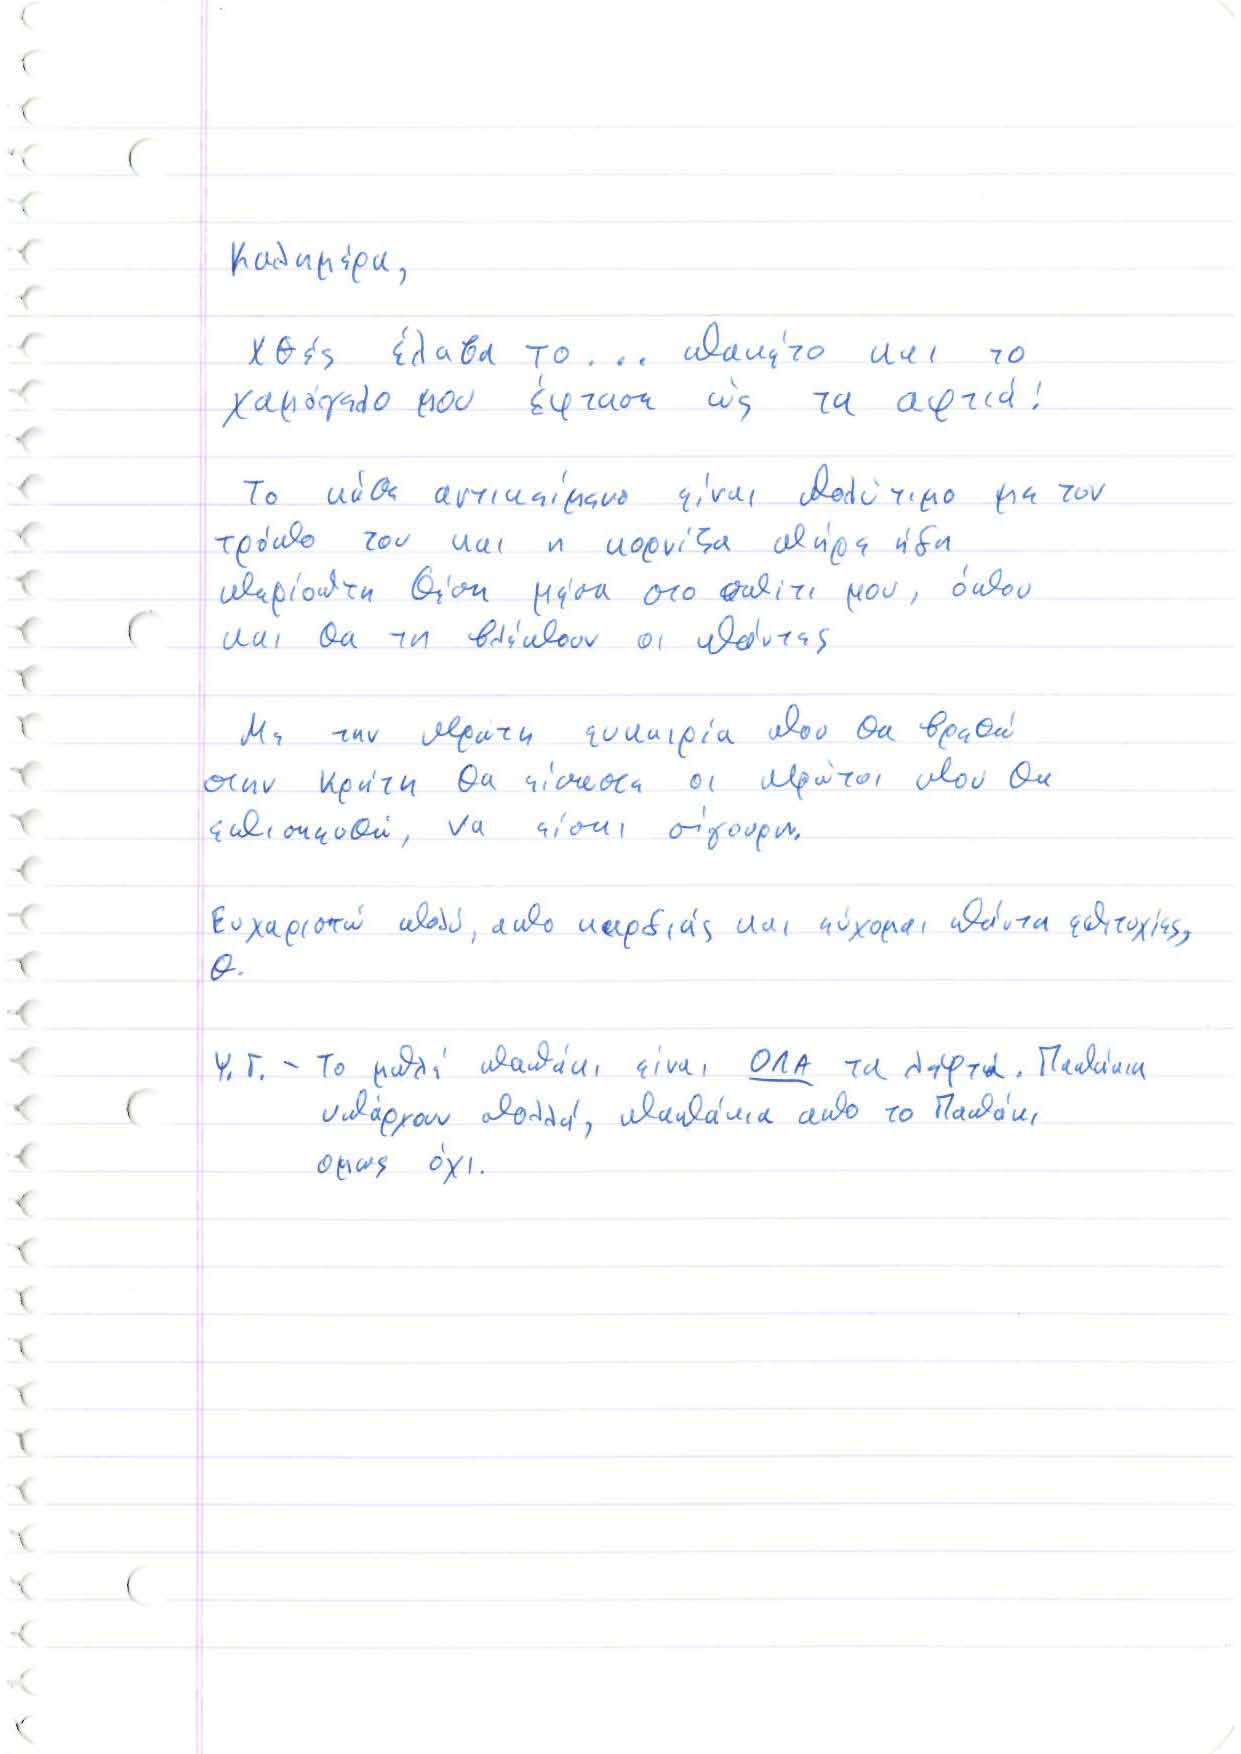 Καλημέρα,
Χθές έλαβα το... πακέτο και το
χαμόγελο μου έφτασε ώς τα αφτιά!
Το κάθε αντικείμενο είναι πολύτιμο με τον
τρόπο του και η κορνίζα πήρε ήδη
περίοπτη θέση μέσα στο σπίτι μου, όπου
και θα τη βλέπουν οι πάντες
Με την πρώτη ευκαιρία που θα βρεθώ
στην Κρήτη θα είσαστε οι πρώτοι που θα
επισκεφθώ, να είσαι σίγουρη.
Ευχαριστώ πολύ, απο καρδιάς και εύχομαι πάντα επιτυχίες,
Θ.
Υ.Γ. - Το μπλέ παπάκι είναι ΟΛΑ τα λεφτά. Παπάκια
υπάρχουν πολλά, παπάκια απο το Παπάκι
ομως όχι.